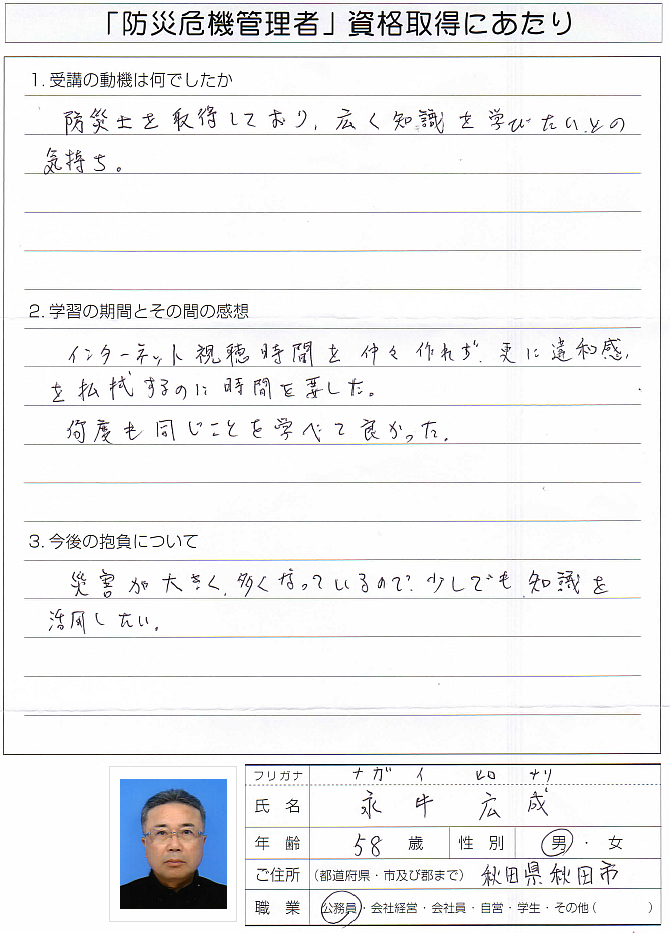 「防災危機管理者」資格取得にあたり
1. 受講の動機は何でしたか
防災士を取得しており、広く知識を学びたいとの
気持ち。
2. 学習の期間とその間の感想
インターネット視聴時間を仲々作れず、更に違和感
を払拭するのに時間を要した。
何度も同じことを学べて良かった。
3. 今後の抱負について
災害が大きく、多くなっているので、少しでも知識を
活用したい。
フリガナ ナガイ ヒロナリ
氏名 永牛 広成
年齢 58 歳 性別 男・女
ご住所 (都道府県・市及び郡まで) 秋田県秋田市
職業 公務員・会社経営・会社員・自営・学生・その他( )